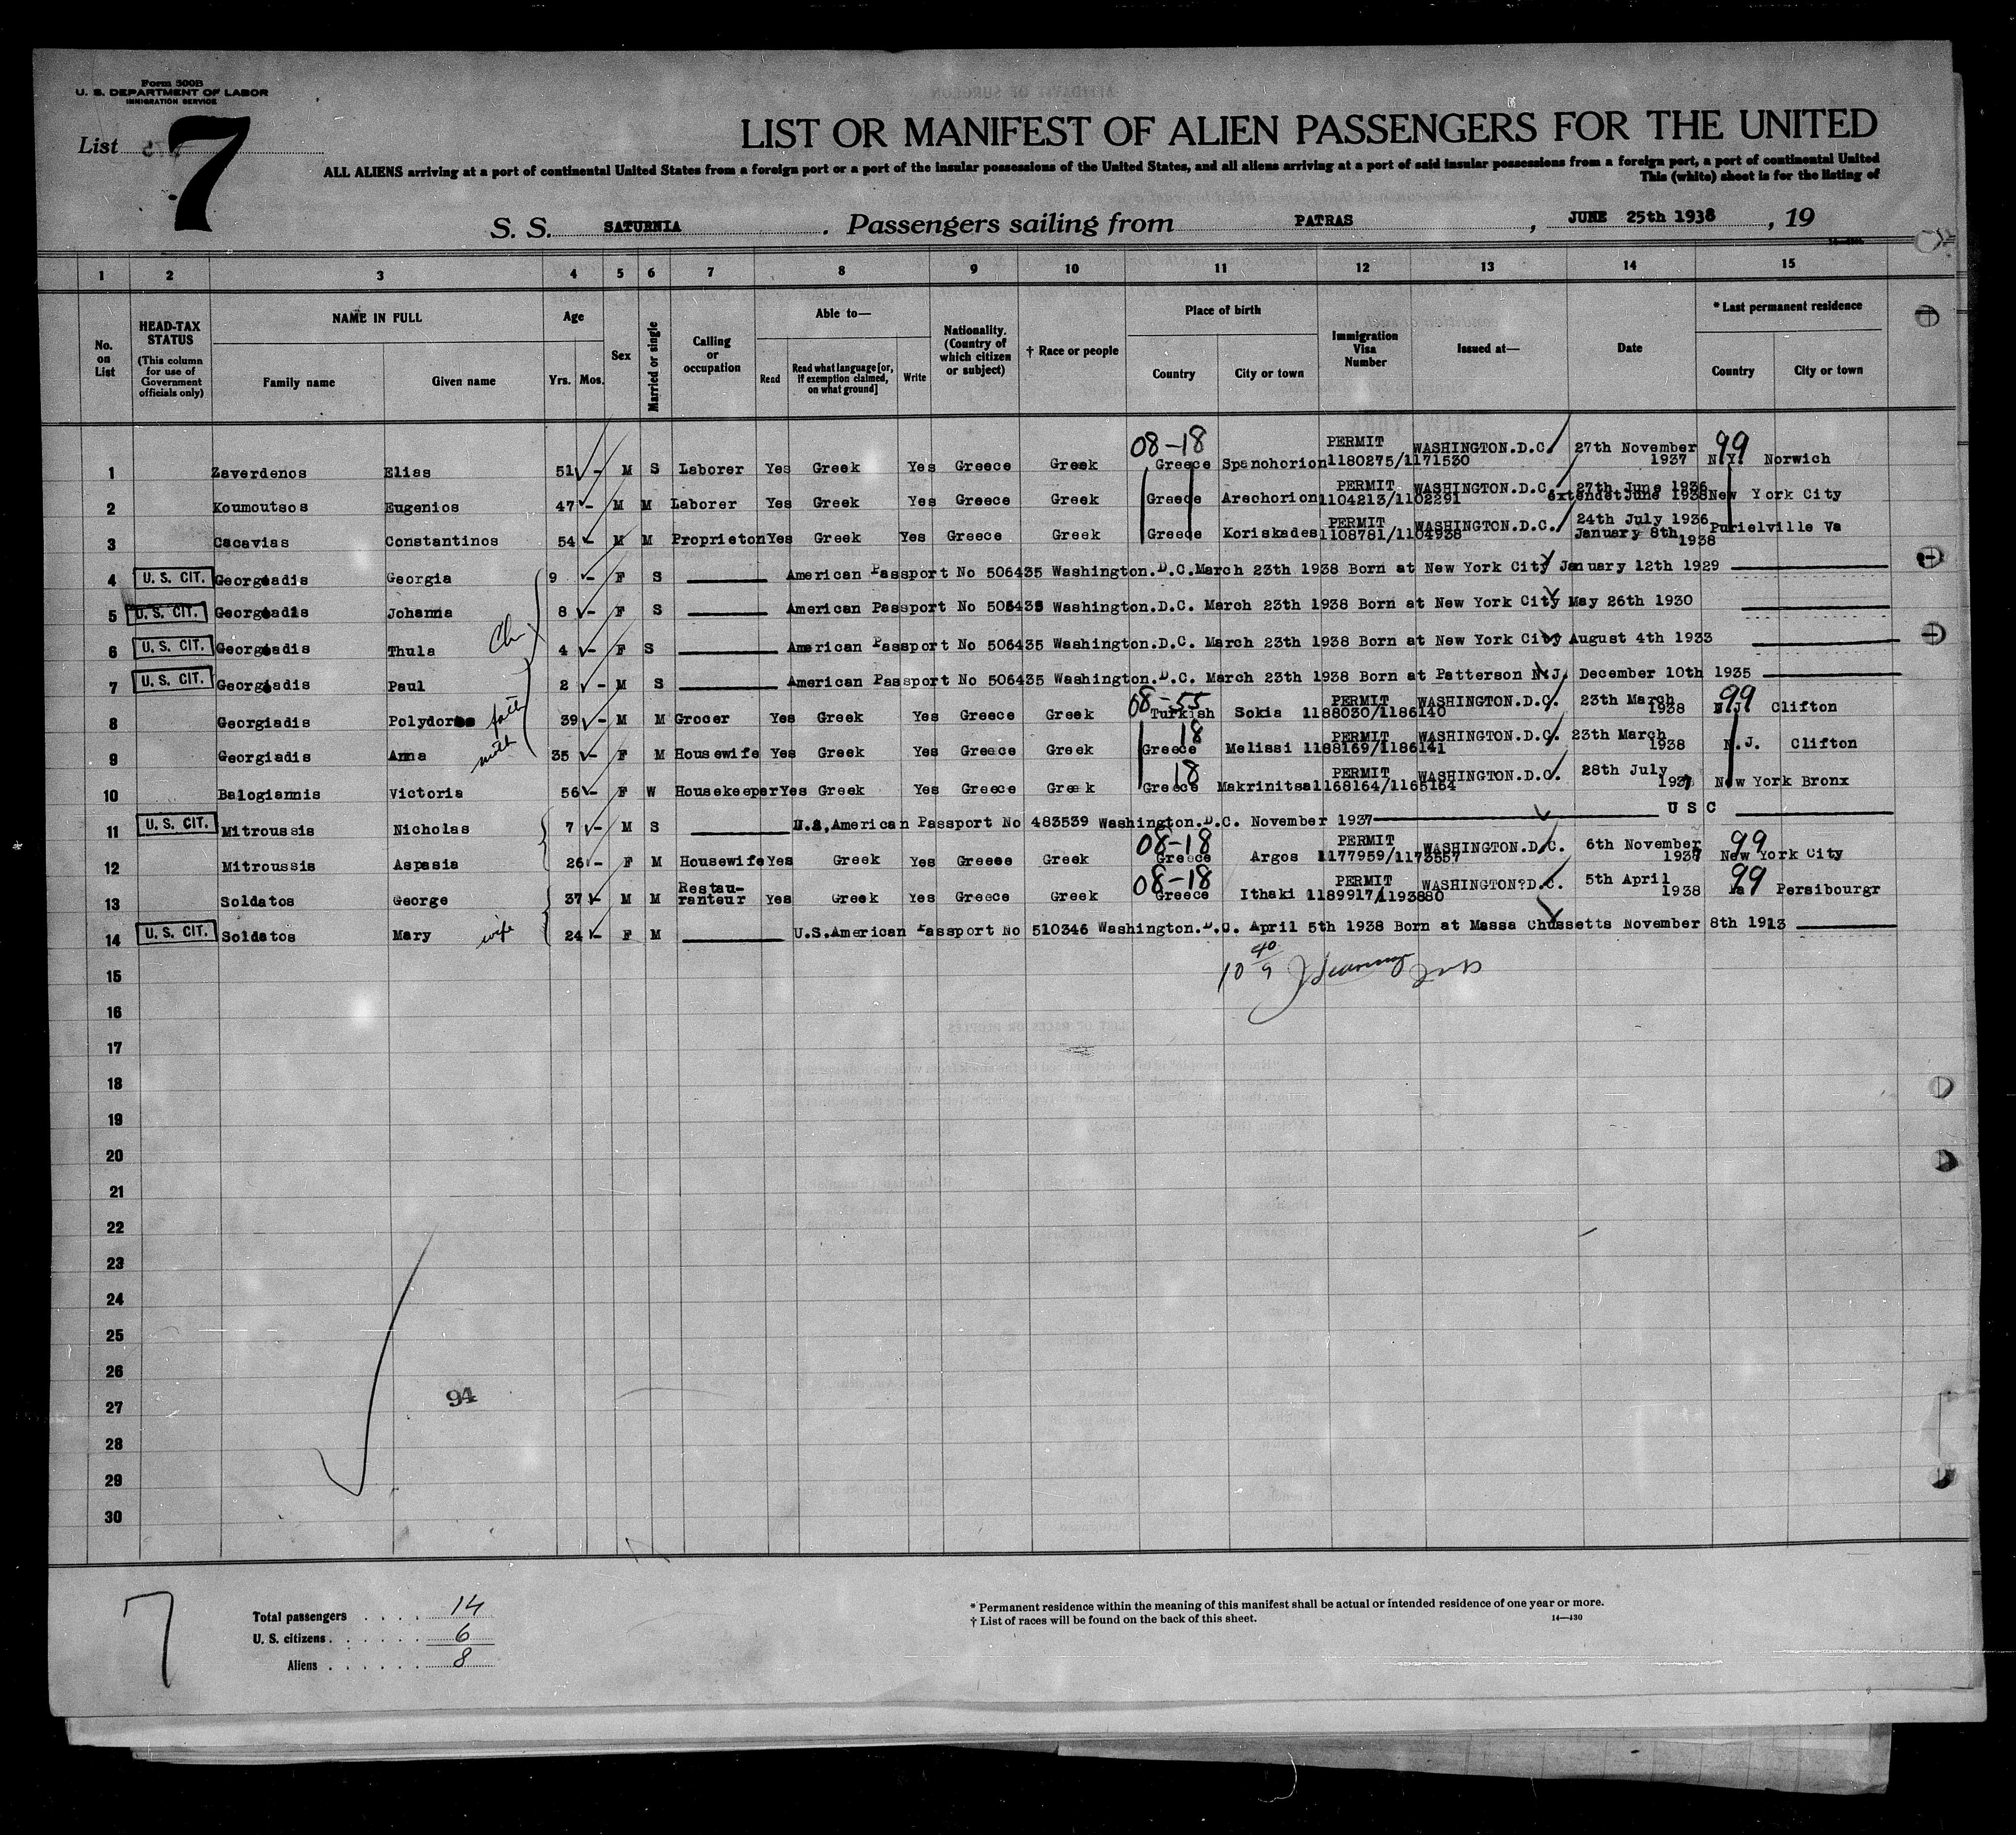 Form 500B
U. S. DEPARTMENT OF LABOR
IMMIGRATION SERVICE
List 7
LIST OR MANIFEST OF ALIEN PASSENGERS FOR THE UNITED
ALL ALIENS arriving at a port of continental United States from a foreign port or a port of the insular possessions of the United States, and all aliens arriving at a port of said insular possessions from a foreign port, a port of continental United
This (white) sheet is for the listing of
S. S. SATURNIA. Passengers sailing from PATRAS, JUNE 25th 1938, 19
1 2 3 4 5 6 7 8 9 10 11 12 13 14 15
No. on List
HEAD-TAX STATUS (This column for use of Government officials only)
NAME IN FULL
Family name Given name
Age
Yrs. Mos.
Sex
Married or single
Calling or occupation
Able to—
Read Read what language [or, if exemption claimed, on what ground] Write
Nationality. (Country of which citizen or subject)
† Race or people
Place of birth
Country City or town
Immigration Visa Number
Issued at—
Date
* Last permanent residence
Country City or town
1 Zaverdenos Elias 51 - M S Laborer Yes Greek Yes Greece Greek 08-18 Greece Spanohorion PERMIT 1180275/1171530 WASHINGTON.D.C. 27th November 1937 99 N.Y. Norwich
2 Koumoutsos Eugenios 47 - M M Laborer Yes Greek Yes Greece Greek Greece Arechorion PERMIT 1104213/1102291 WASHINGTON.D.C. 27th June 1936 extendet June 1938 New York City
3 Cacavias Constantinos 54 - M M Proprieton Yes Greek Yes Greece Greek Greece Koriskades PERMIT 1108781/1104938 WASHINGTON.D.C. 24th July 1936 January 8th 1938 Purielville Va
4 U. S. CIT. Georgiadis Georgia 9 - F S American Passport No 506435 Washington.D.C. March 23th 1938 Born at New York City January 12th 1929
5 U. S. CIT. Georgiadis Johanna 8 - F S American Passport No 506435 Washington.D.C. March 23th 1938 Born at New York City May 26th 1930
6 U. S. CIT. Georgiadis Thula Ch 4 - F S American Passport No 506435 Washington.D.C. March 23th 1938 Born at New York City August 4th 1933
7 U. S. CIT. Georgiadis Paul 2 - M S American Passport No 506435 Washington.D.C. March 23th 1938 Born at Patterson N.J. December 10th 1935
8 Georgiadis Polydoros fath 39 - M M Grocer Yes Greek Yes Greece Greek 08-55 Turkish Sokia PERMIT 1188030/1186140 WASHINGTON.D.C. 23th March 1938 99 N.J. Clifton
9 Georgiadis Anna moth 35 - F M Housewife Yes Greek Yes Greece Greek 18 Greece Melissi PERMIT 1188169/1186141 WASHINGTON.D.C. 23th March 1938 N.J. Clifton
10 Balogiannis Victoria 56 - F W Housekeeper Yes Greek Yes Greece Greek 18 Greece Makrinitsa PERMIT 1168164/1165164 WASHINGTON.D.C. 28th July 1937 New York Bronx
11 U. S. CIT. Mitroussis Nicholas 7 - M S U.S.American Passport No 483539 Washington.D.C. November 1937 U S C
12 Mitroussis Aspasia 26 - F M Housewife Yes Greek Yes Greece Greek 08-18 Greece Argos PERMIT 1177959/1173557 WASHINGTON.D.C. 6th November 1937 99 New York City
13 Soldatos George 37 - M M Restau-ranteur Yes Greek Yes Greece Greek 08-18 Greece Ithaki PERMIT 1189917/1193880 WASHINGTON?D.C. 5th April 1938 99 Persibourgr
14 U. S. CIT. Soldatos Mary wife 24 - F M U.S.American Passport No 510346 Washington.D.C. April 5th 1938 Born at Massa Chussetts November 8th 1913
15
16
17
18
19
20
21
22
23
24
25
26
27
28
29
30
94
7
Total passengers . . . . 14
U. S. citizens . . . . . . 6
Aliens . . . . . . 8
* Permanent residence within the meaning of this manifest shall be actual or intended residence of one year or more.
† List of races will be found on the back of this sheet.
14—430